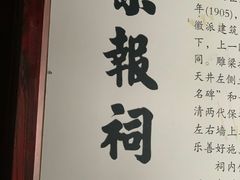 報祠
年(1905),
徽派建筑
下,上一
同。雕梁
天井左侧
名碑”和
清两代保
左右墙上
乐善好施
祠内